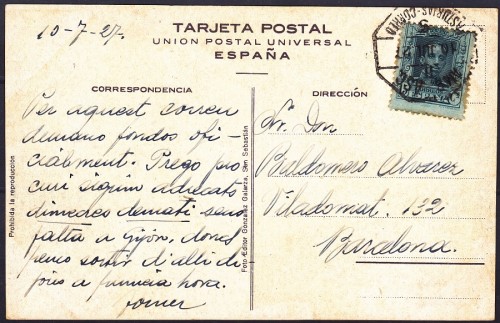 10-7-27.
TARJETA POSTAL
UNION POSTAL UNIVERSAL
ESPAÑA
CORRESPONDENCIA
DIRECCIÓN
Per aquest correu
demano fondos ofi-
cialment. Prego pro
curi siguin adreçats
dimecres demati sens
falta a Gijón, doncs
penso sortir d'alli
a primera hora.
Sr. Don
Baldomero Alvarez
Viladomat. 132
Barcelona.
Prohibida la reproducción
Foto-Editor González Galarza, San Sebastián
ASTURIAS-CORREO